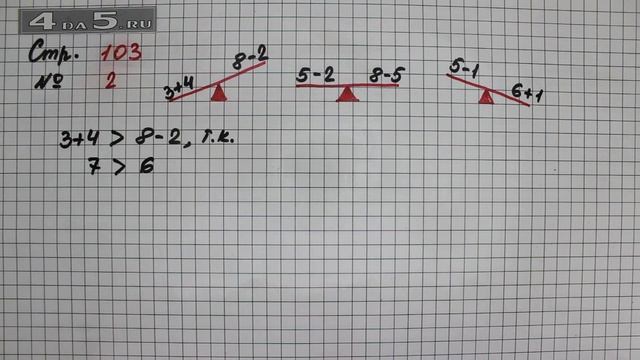 4DA5.RU
Стр. 103
№ 2
3+4 8-2 5-2 8-5 5-1 6+1
3+4 > 8-2, т.к.
7 > 6